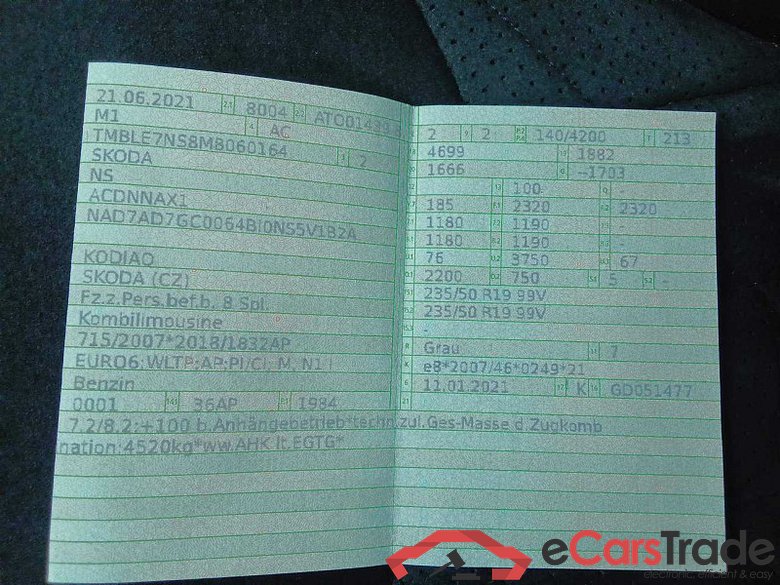 21.06.2021 2.1 8004 2.2
M1 4 AC
TMBLE7NS8M8060164 3 2
SKODA
NS
ACDNNAX1
NAD7AD7GC0064BI0NS5V1B2A
KODIAQ
SKODA (CZ)
Fz.z.Pers.bef.b. 8 Spl.
Kombilimousine
715/2007*2018/1832AP
EURO6;WLTP;AP;PI/CI; M, N1 I
Benzin
0001 14.1 36AP P.1 1984
7.2/8.2:+100 b.Anhängebetrieb*techn.zul.Ges-Masse d.Zugkomb
nation:4520kg*ww.AHK lt.EGTG*
2 9 2 140/4200 T 213
4699 19 1882
1666 G --1703
100 -
185 2320 2320
1180 1190 -
1180 1190 -
76 3750 67
2200 750 S.1 5 S.2 -
235/50 R19 99V
235/50 R19 99V
-
Grau 11 7
e8*2007/46*0249*21
11.01.2021 17 K 16 GD051477
21
eCarsTrade
electronic, efficient & easy